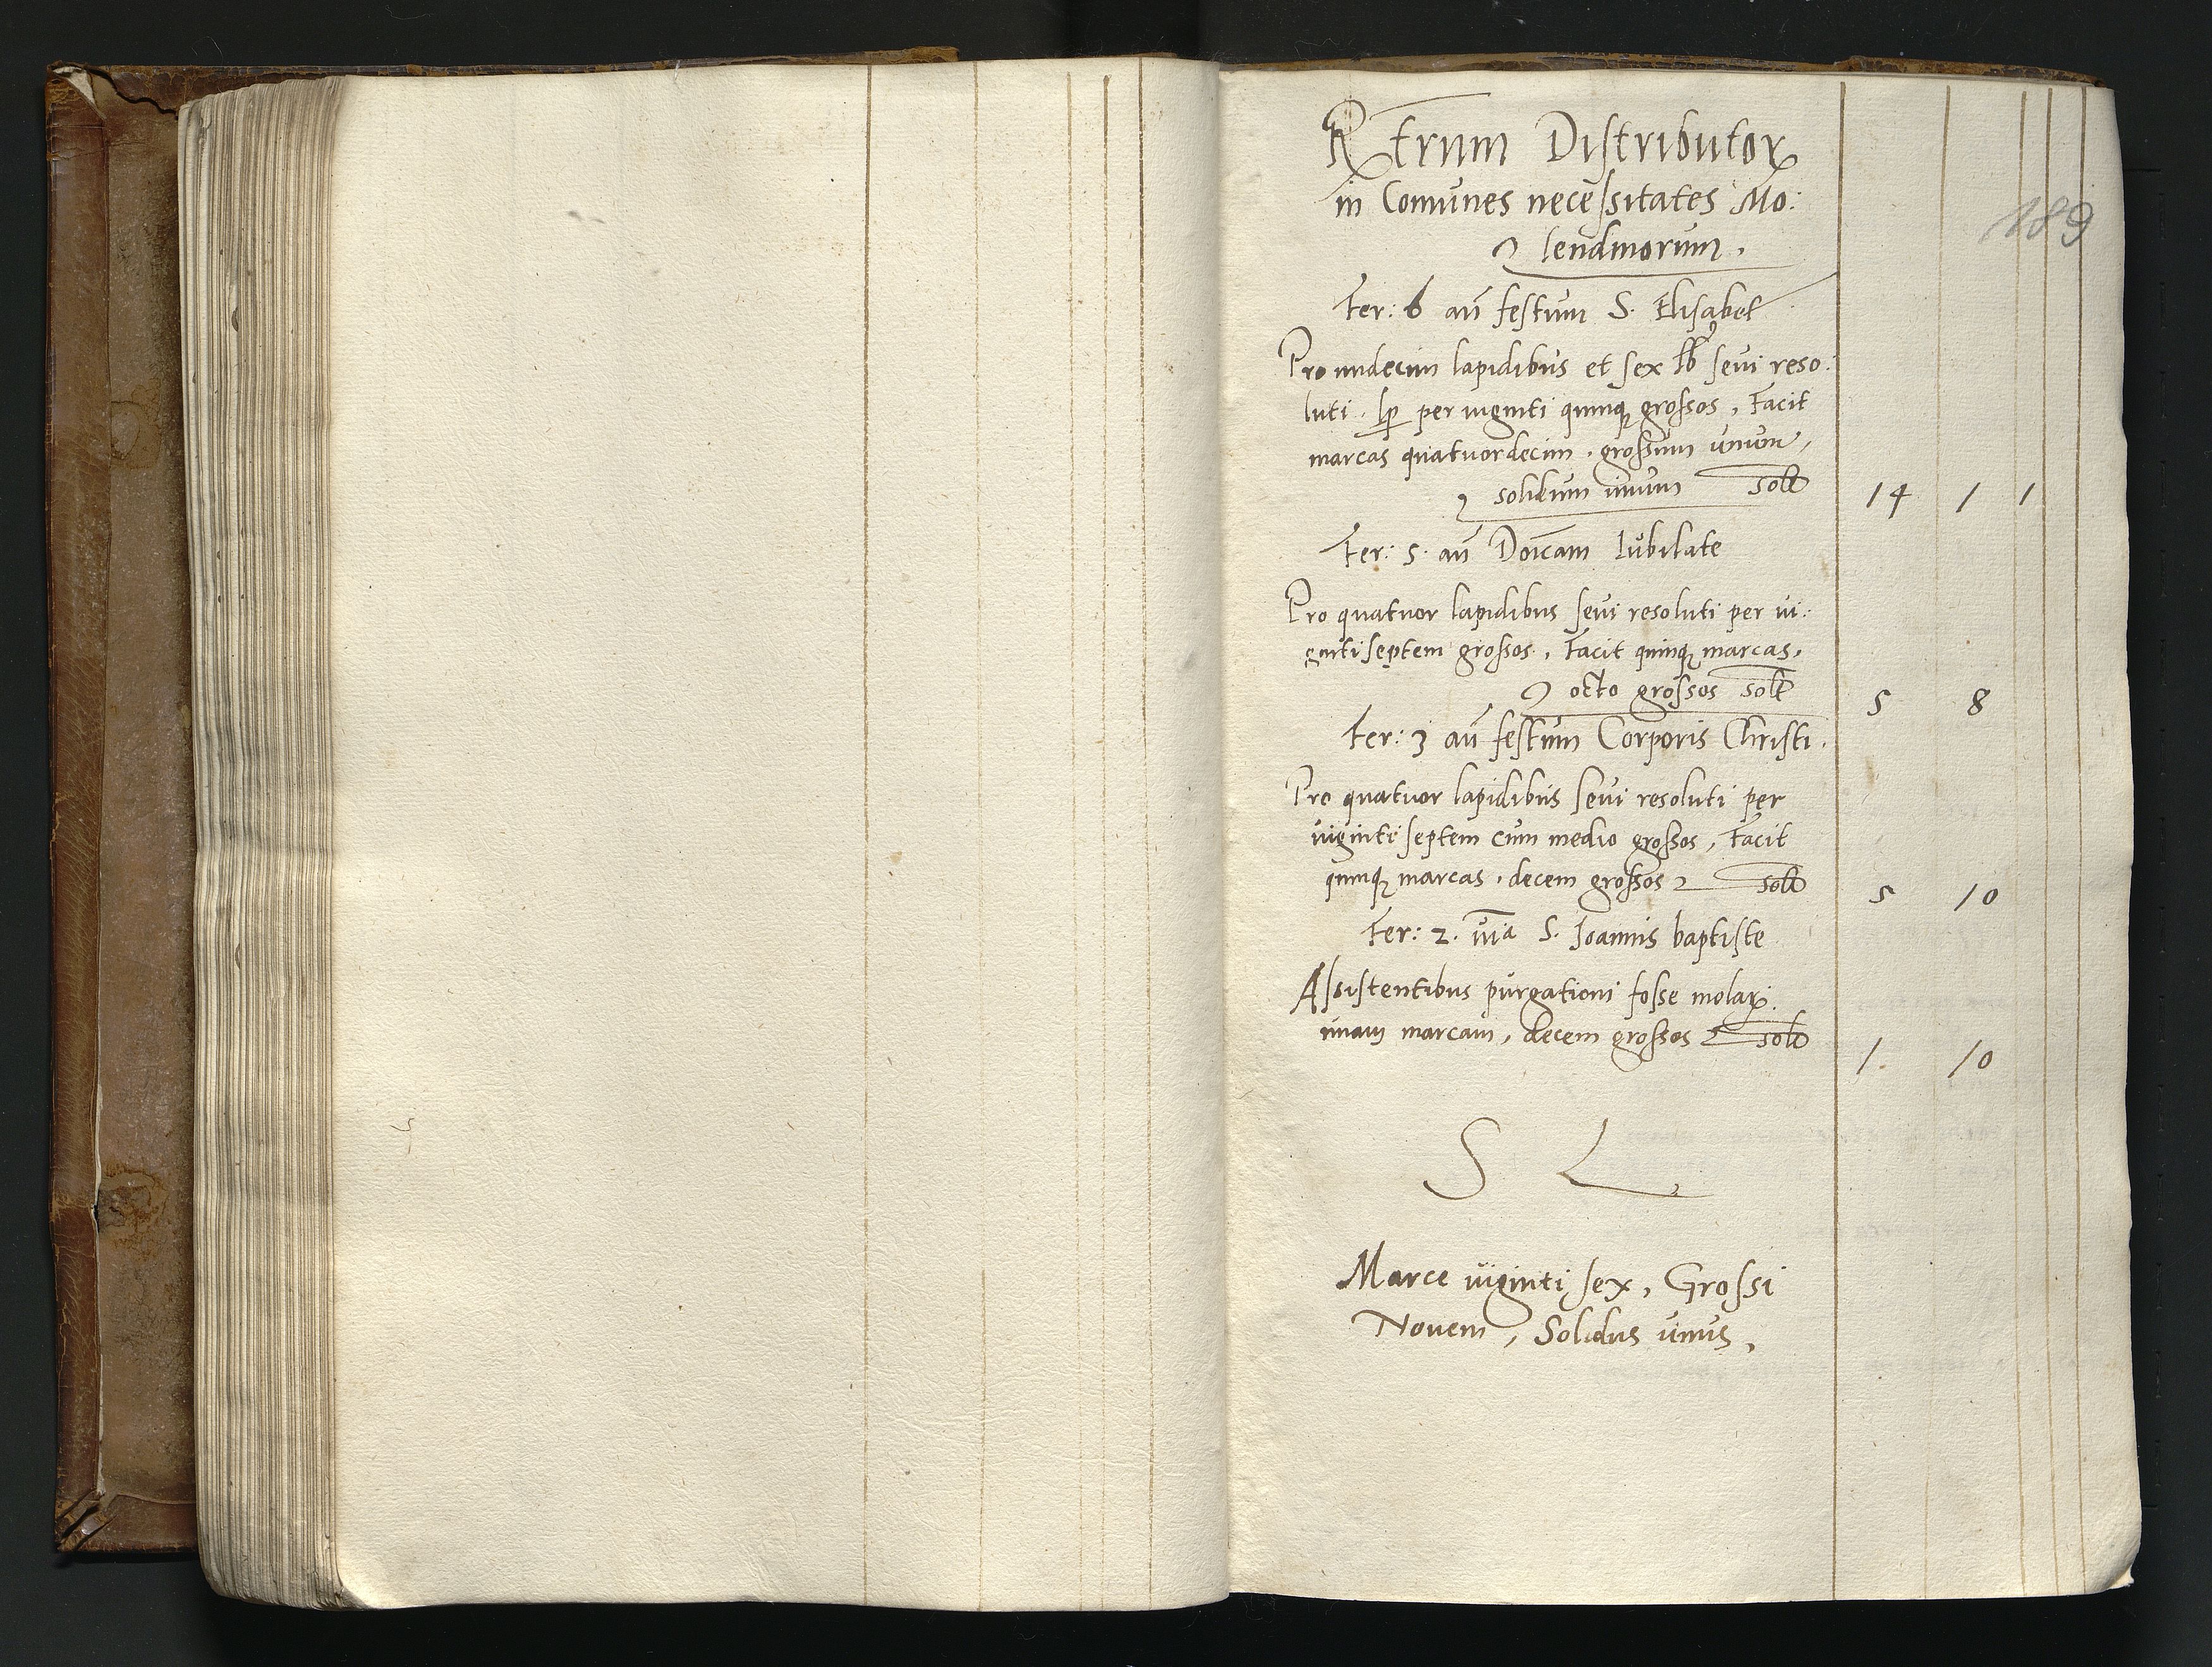 Rtrum Distributor
in Comunes necessitates Mo:
lendinorum.
189
Fer: 6 an festum S. Elisabet
Pro undecim lapidibus et sex lb sevi reso:
luti. lp per viginti quinq grossos, Facit
marcas quatuordecim. grossum unum,
solidum unum solt 14 1 1
Fer: 5. an Doicam Iubilate
Pro quatuor lapidibus sevi resoluti per vi:
ginti septem grossos, Facit quinq marcas,
octo grossos solt 5 8
Fer: 3 an festum Corporis Christi.
Pro quatuor lapidibus sevi resoluti per
viginti septem cum medio grossos, Facit
quinq marcas, decem grossos solt 5 10
Fer: 2. via S. Joannis baptiste
Assistentibus purgationi fosse molar.
unam marcam, decem grossos solt 1. 10
S L
Marce viginti sex, Grossi
Novem, Solidus unus,